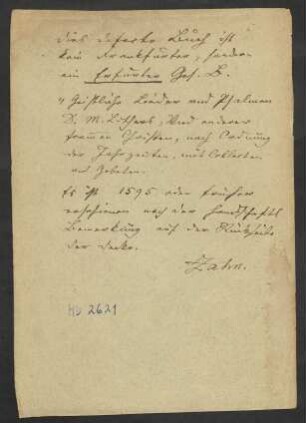 Dies defecte Buch ist
kein Frankfurter, sondern
ein Erfurter Ges. B.
"Geistliche Lieder und Psalmen
D. M. Luthers, Und anderer
frommen Christen, nach Ordnung
der Jahrzeiten, mit Collecten
und Gebeten.
Es ist 1595 oder früher
erschienen nach der handschriftl.
Bemerkung auf der Rückseite
der Decke.
Zahn.
Hb 2621